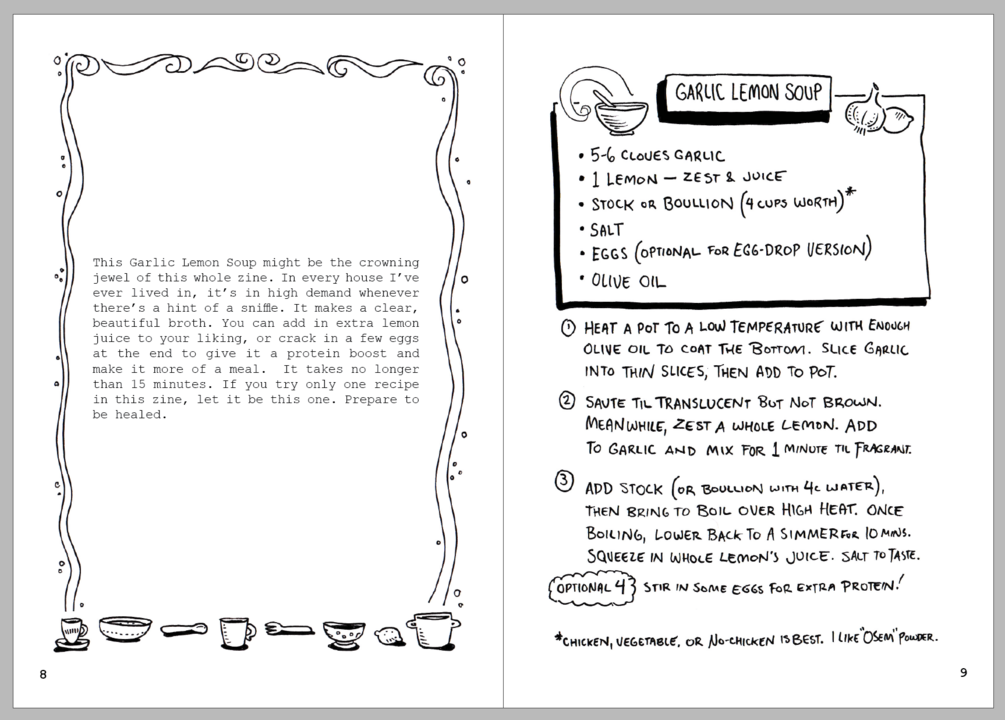 This Garlic Lemon Soup might be the crowning
jewel of this whole zine. In every house I've
ever lived in, it's in high demand whenever
there's a hint of a sniffle. It makes a clear,
beautiful broth. You can add in extra lemon
juice to your liking, or crack in a few eggs
at the end to give it a protein boost and
make it more of a meal.  It takes no longer
than 15 minutes. If you try only one recipe
in this zine, let it be this one. Prepare to
be healed.
8
GARLIC LEMON SOUP
• 5-6 CLOVES GARLIC
• 1 LEMON — ZEST & JUICE
• STOCK OR BOULLION (4 CUPS WORTH)*
• SALT
• EGGS (OPTIONAL FOR EGG-DROP VERSION)
• OLIVE OIL
① HEAT A POT TO A LOW TEMPERATURE WITH ENOUGH
OLIVE OIL TO COAT THE BOTTOM. SLICE GARLIC
INTO THIN SLICES, THEN ADD TO POT.
② SAUTE TIL TRANSLUCENT BUT NOT BROWN.
MEANWHILE, ZEST A WHOLE LEMON. ADD
TO GARLIC AND MIX FOR 1 MINUTE TIL FRAGRANT.
③ ADD STOCK (OR BOULLION WITH 4C WATER),
THEN BRING TO BOIL OVER HIGH HEAT. ONCE
BOILING, LOWER BACK TO A SIMMER FOR 10 MINS.
SQUEEZE IN WHOLE LEMON'S JUICE. SALT TO TASTE.
OPTIONAL 4 STIR IN SOME EGGS FOR EXTRA PROTEIN!
*CHICKEN, VEGETABLE, OR NO-CHICKEN IS BEST. I LIKE "OSEM" POWDER.
9